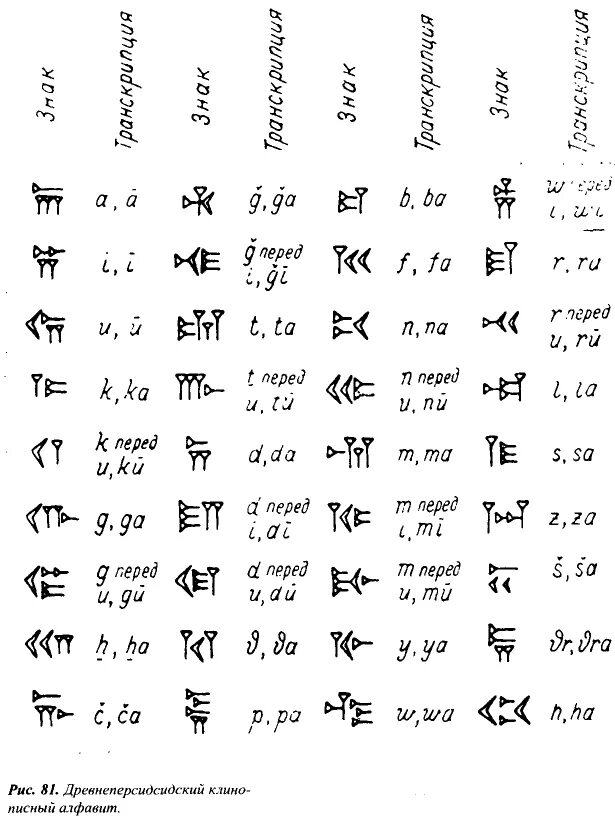 Знак Транскрипция Знак Транскрипция Знак Транскрипция Знак Транскрипция
𐎠 a, ā 𐎩 ǧ, ǧa 𐎲 b, ba 𐎻 w перед i, wi
𐎡 i, ī 𐎪 ǧ перед i, ǧī 𐎳 f, fa 𐎼 r, ra
𐎢 u, ū 𐎫 t, ta 𐎴 n, na 𐎽 r перед u, rū
𐎣 k, ka 𐎬 t перед u, tū 𐎵 n перед u, nū 𐎾 l, la
𐎤 k перед u, kū 𐎭 d, da 𐎶 m, ma 𐎿 s, sa
𐎥 g, ga 𐎮 d перед i, dī 𐎷 m перед i, mī 𐏀 z, za
𐎦 g перед u, gū 𐎯 d перед u, dū 𐎸 m перед u, mū 𐏁 š, ša
𐎧 ẖ, ẖa 𐎰 ϑ, ϑa 𐎹 y, ya 𐏂 ϑr, ϑra
𐎨 č, ča 𐎱 p, pa 𐎺 w, wa 𐏃 h, ha
Рис. 81. Древнеперсидсидский клино-
писный алфавит.